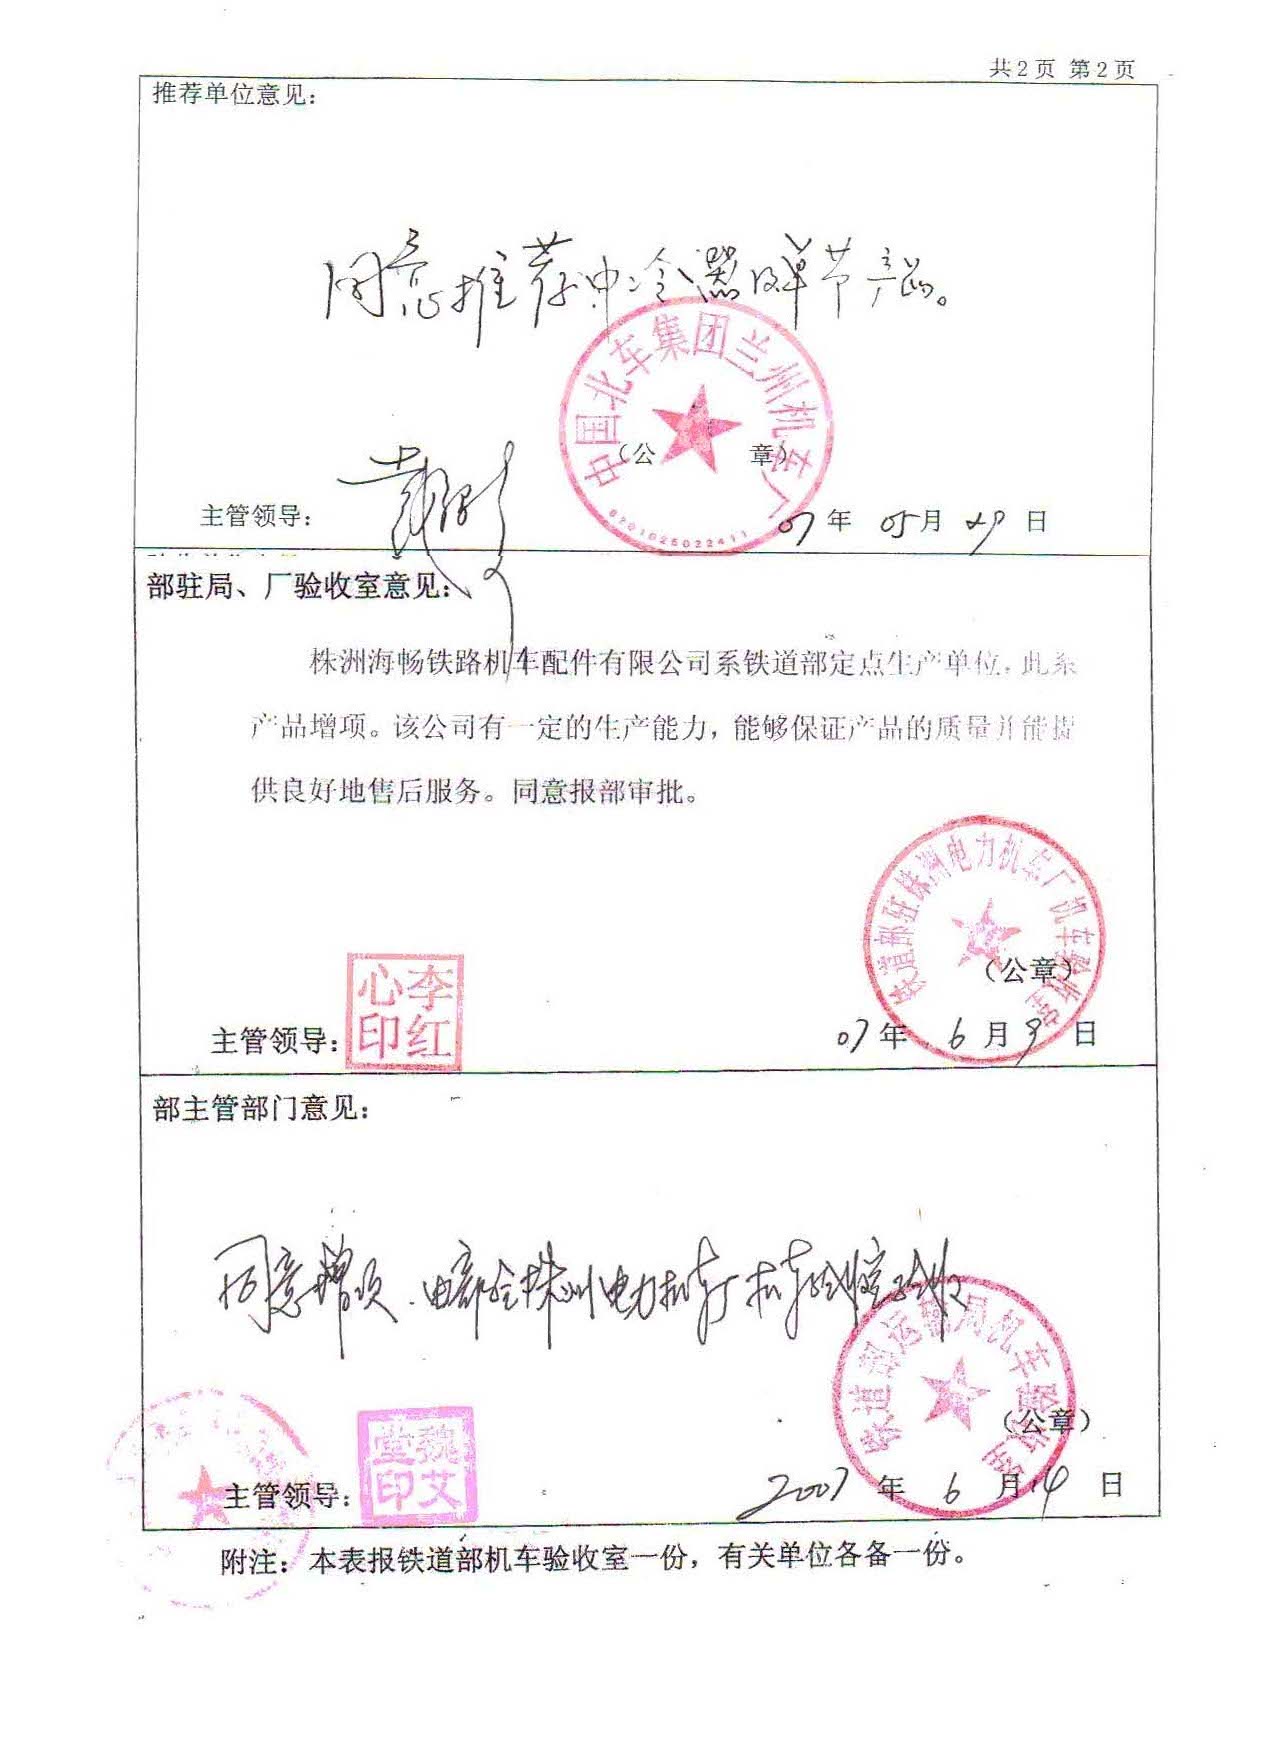 共2页 第2页
推荐单位意见：
同意推荐中冷器及单节产品。
中国北车集团兰州机车厂
6201025022411
（公 章）
主管领导： 07年 05月 29日
部驻局、厂验收室意见：
株洲海畅铁路机车配件有限公司系铁道部定点生产单位，此系
产品增项。该公司有一定的生产能力，能够保证产品的质量并能提
供良好地售后服务。同意报部审批。
铁道部驻株洲电力机车厂机车验收室
（公章）
主管领导： 李红心印 07年 6月 9日
部主管部门意见：
同意增项，由部驻株洲电力机车厂机车验收室验收
铁道部运输局机车验收室
（公章）
主管领导： 魏艾堂印 2007年 6月14日
附注：本表报铁道部机车验收室一份，有关单位各备一份。